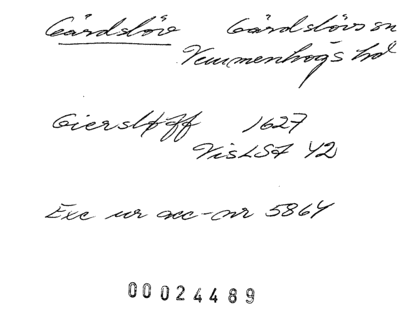 Gärdslöv Gärdslövs sn
Vemmenhögs hd
Gierslöff 1627
VisLSt 42
Exc ur acc-nr 5864
00024489